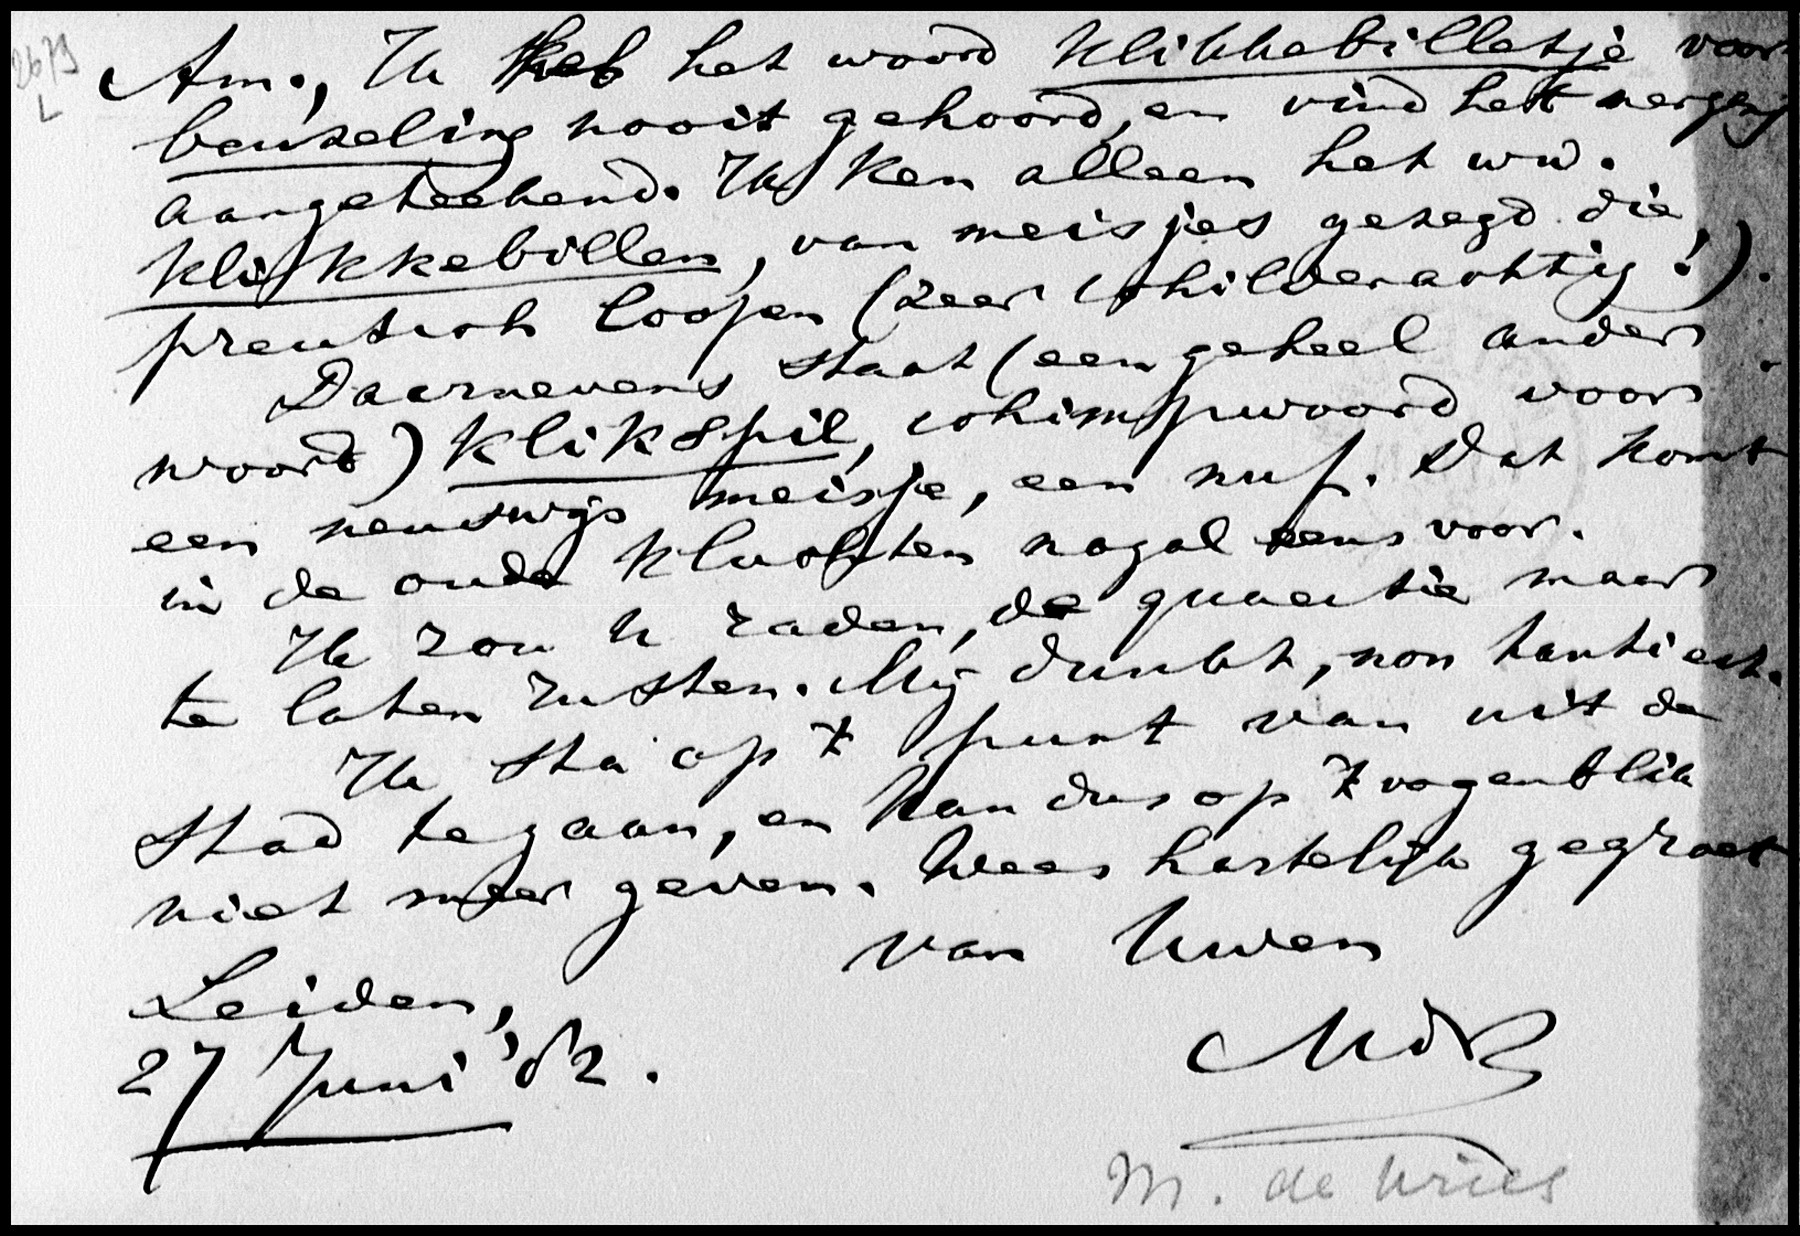 2679
L
Am., Ik heb het woord klikkebilletje voor
beuzeling nooit gehoord, en vind het nergens
aangeteekend. Ik ken alleen het ww.
klikkebillen, van meisjes gezegd die
preutsch loopen (zeer schilderachtig!).
Daarnevens staat (een geheel ander
woord) klikspil, schimpwoord voor
een neuswijs meisje, een nuf. Dat komt
in de oude kluchten nogal eens voor.
Ik zou u raden, de quaestie maar
te laten rusten. Mij dunkt, non tanti est.
Ik sta op 't punt van uit de
stad te gaan, en kan dus op 't oogenblik
niet meer geven. Wees hartelijk gegroet
van Uwen
Leiden,
27 Juni '82.
MdV
M. de Vries